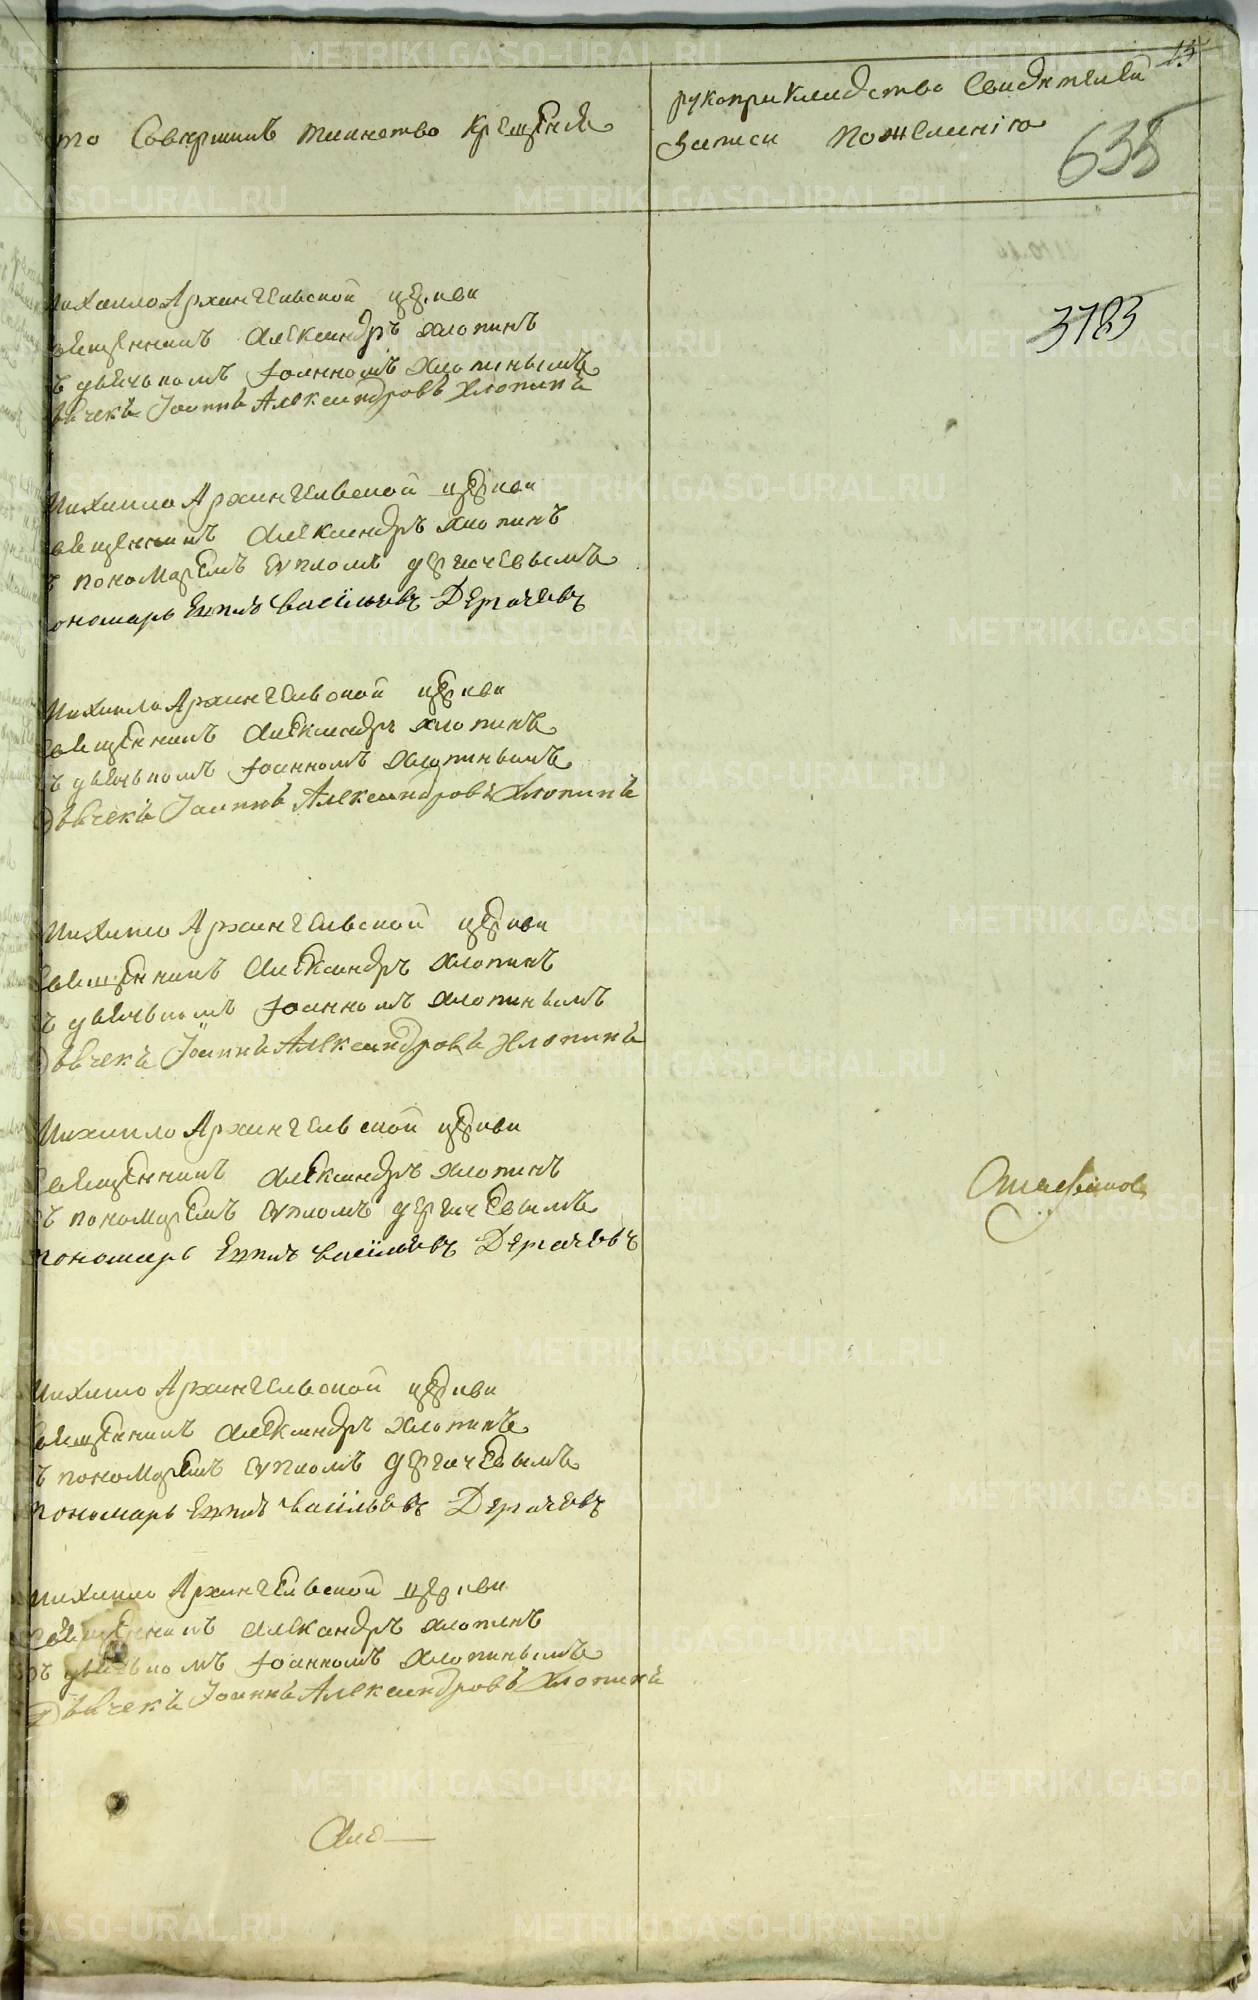 13
кто Совершилъ таинство крещенiя
рукоприкладство Свидѣтелей
записи по желанiю
635
3783
Михаило Архангельской церкви
священникъ Александръ Хлопинъ
съ дьячькомъ Іоанномъ Хлопинымъ
Дьячекъ Іоаннъ Александровъ Хлопинъ
Михаило Архангельской церкви
священникъ Александръ Хлопинъ
съ пономаремъ Еупломъ дергачевымъ
пономарь Еуплъ Васильевъ Дергачевъ
Михаило Архангельской церкви
священникъ Александръ Хлопинъ
съ дьячькомъ Іоанномъ Хлопинымъ
Дьячекъ Іоаннъ Александровъ Хлопинъ
Михаило Архангельской церкви
священникъ Александръ Хлопинъ
съ дьячькомъ Іоанномъ Хлопинымъ
Дьячекъ Іоаннъ Александровъ Хлопинъ
Михаило Архангельской церкви
священникъ Александръ Хлопинъ
съ пономаремъ Еупломъ дергачевымъ
пономарь Еуплъ Васильевъ Дергачевъ
Михаило Архангельской церкви
священникъ Александръ Хлопинъ
съ пономаремъ Еупломъ дергачевымъ
пономарь Еуплъ Васильевъ Дергачевъ
Михаило Архангельской церкви
священникъ Александръ Хлопинъ
съ дьячькомъ Іоанномъ Хлопинымъ
Дьячекъ Іоаннъ Александровъ Хлопинъ
METRIKI.GASO-URAL.RU